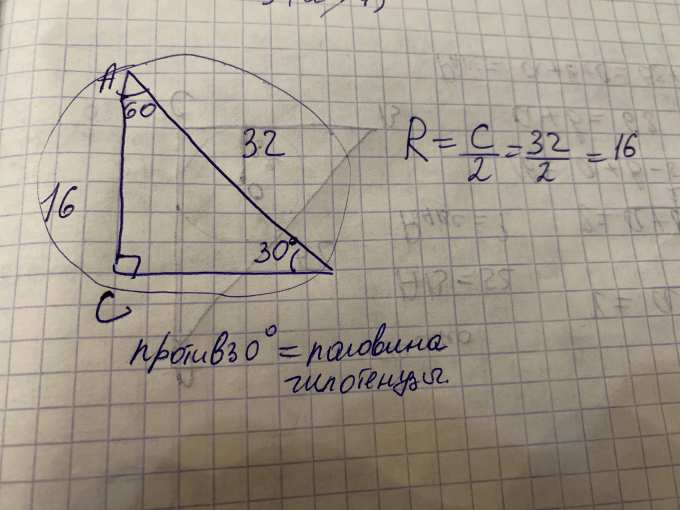 A
60
32
16
30°
C
R = c/2 = 32/2 = 16
против 30° = половина
гипотенузы.